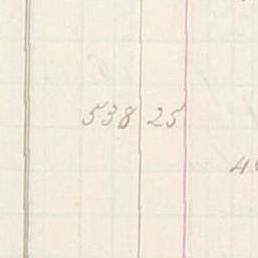 538 25